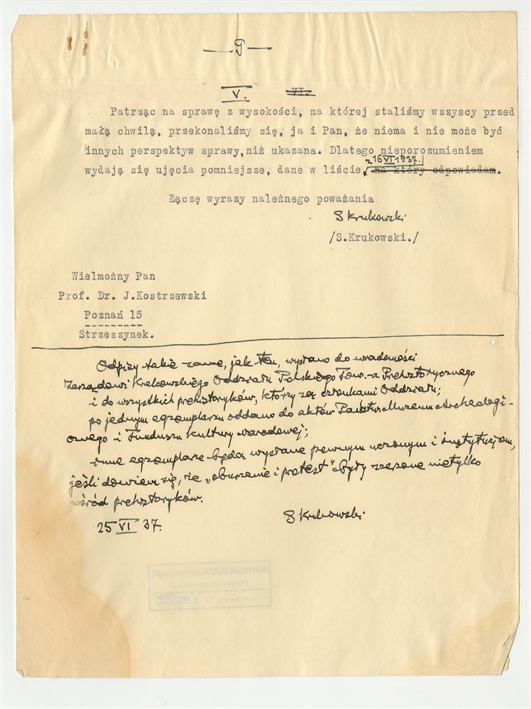 — 9 —
V. VI.
Patrząc na sprawę z wysokości, na której staliśmy wszyscy przed
małą chwilą, przekonaliśmy się, ja i Pan, że niema i nie może być
innych perspektyw sprawy, niż ukazana. Dlatego nieporozumieniem
z 16 VI 1937.
wydają się ujęcia pomniejsze, dane w liście, na który odpowiadam.
Łączę wyrazy należnego poważania
S Krukowski
/S.Krukowski./
Wielmożny Pan
Prof. Dr. J.Kostrzewski
Poznań 15
Strzeszynek.
Odpisy takie same, jak ten, wysłano do wiadomości
Zarządowi Krakowskiego Oddziału Polskiego Tow-a Prehistorycznego
i do wszystkich prehistoryków, którzy są członkami Oddziału;
po jednym egzemplarzu oddano do aktów Państw. Muzeum Archeologi-
cznego i Funduszu Kultury Narodowej;
inne egzemplarze będą wysłane pewnym uczonym i instytucjom,
jeśli dowiem się, że „oburzenie i protest” były szerzone nietylko
wśród prehistoryków.
25 VI 37.
S Krukowski